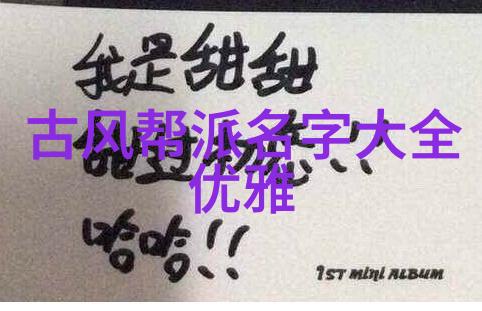 我是甜甜
古风帮派名字大全
甜过初恋!!
优雅
哈哈!!
1ST MINI ALBUM